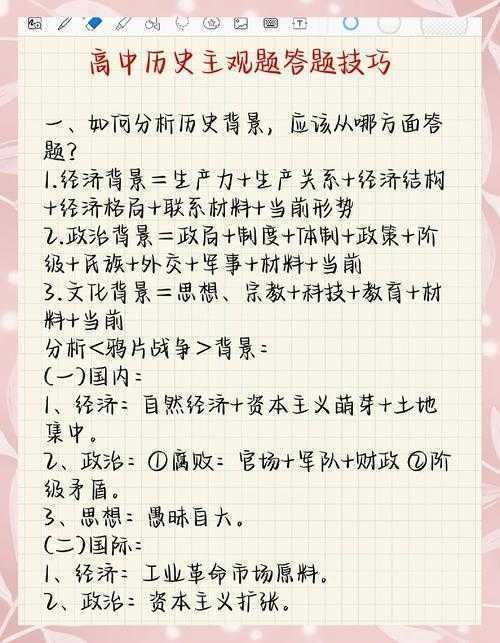 高中历史主观题答题技巧
一、如何分析历史背景，应该从哪方面答
题？
1.经济背景＝生产力+生产关系+经济结构
+经济格局+联系材料+当前形势
2.政治背景＝政局+制度+体制+政策+阶
级+民族+外交+军事+材料+当前
3.文化背景＝思想、宗教+科技+教育+材
料+当前
分析<鸦片战争>背景：
(一)国内：
1、经济：自然经济+资本主义萌芽+土地
集中。
2、政治：①腐败：官场+军队+财政 ②阶
级矛盾。
3、思想：愚昧自大。
(二)国际：
1、经济：工业革命市场原料。
2、政治：资本主义扩张。